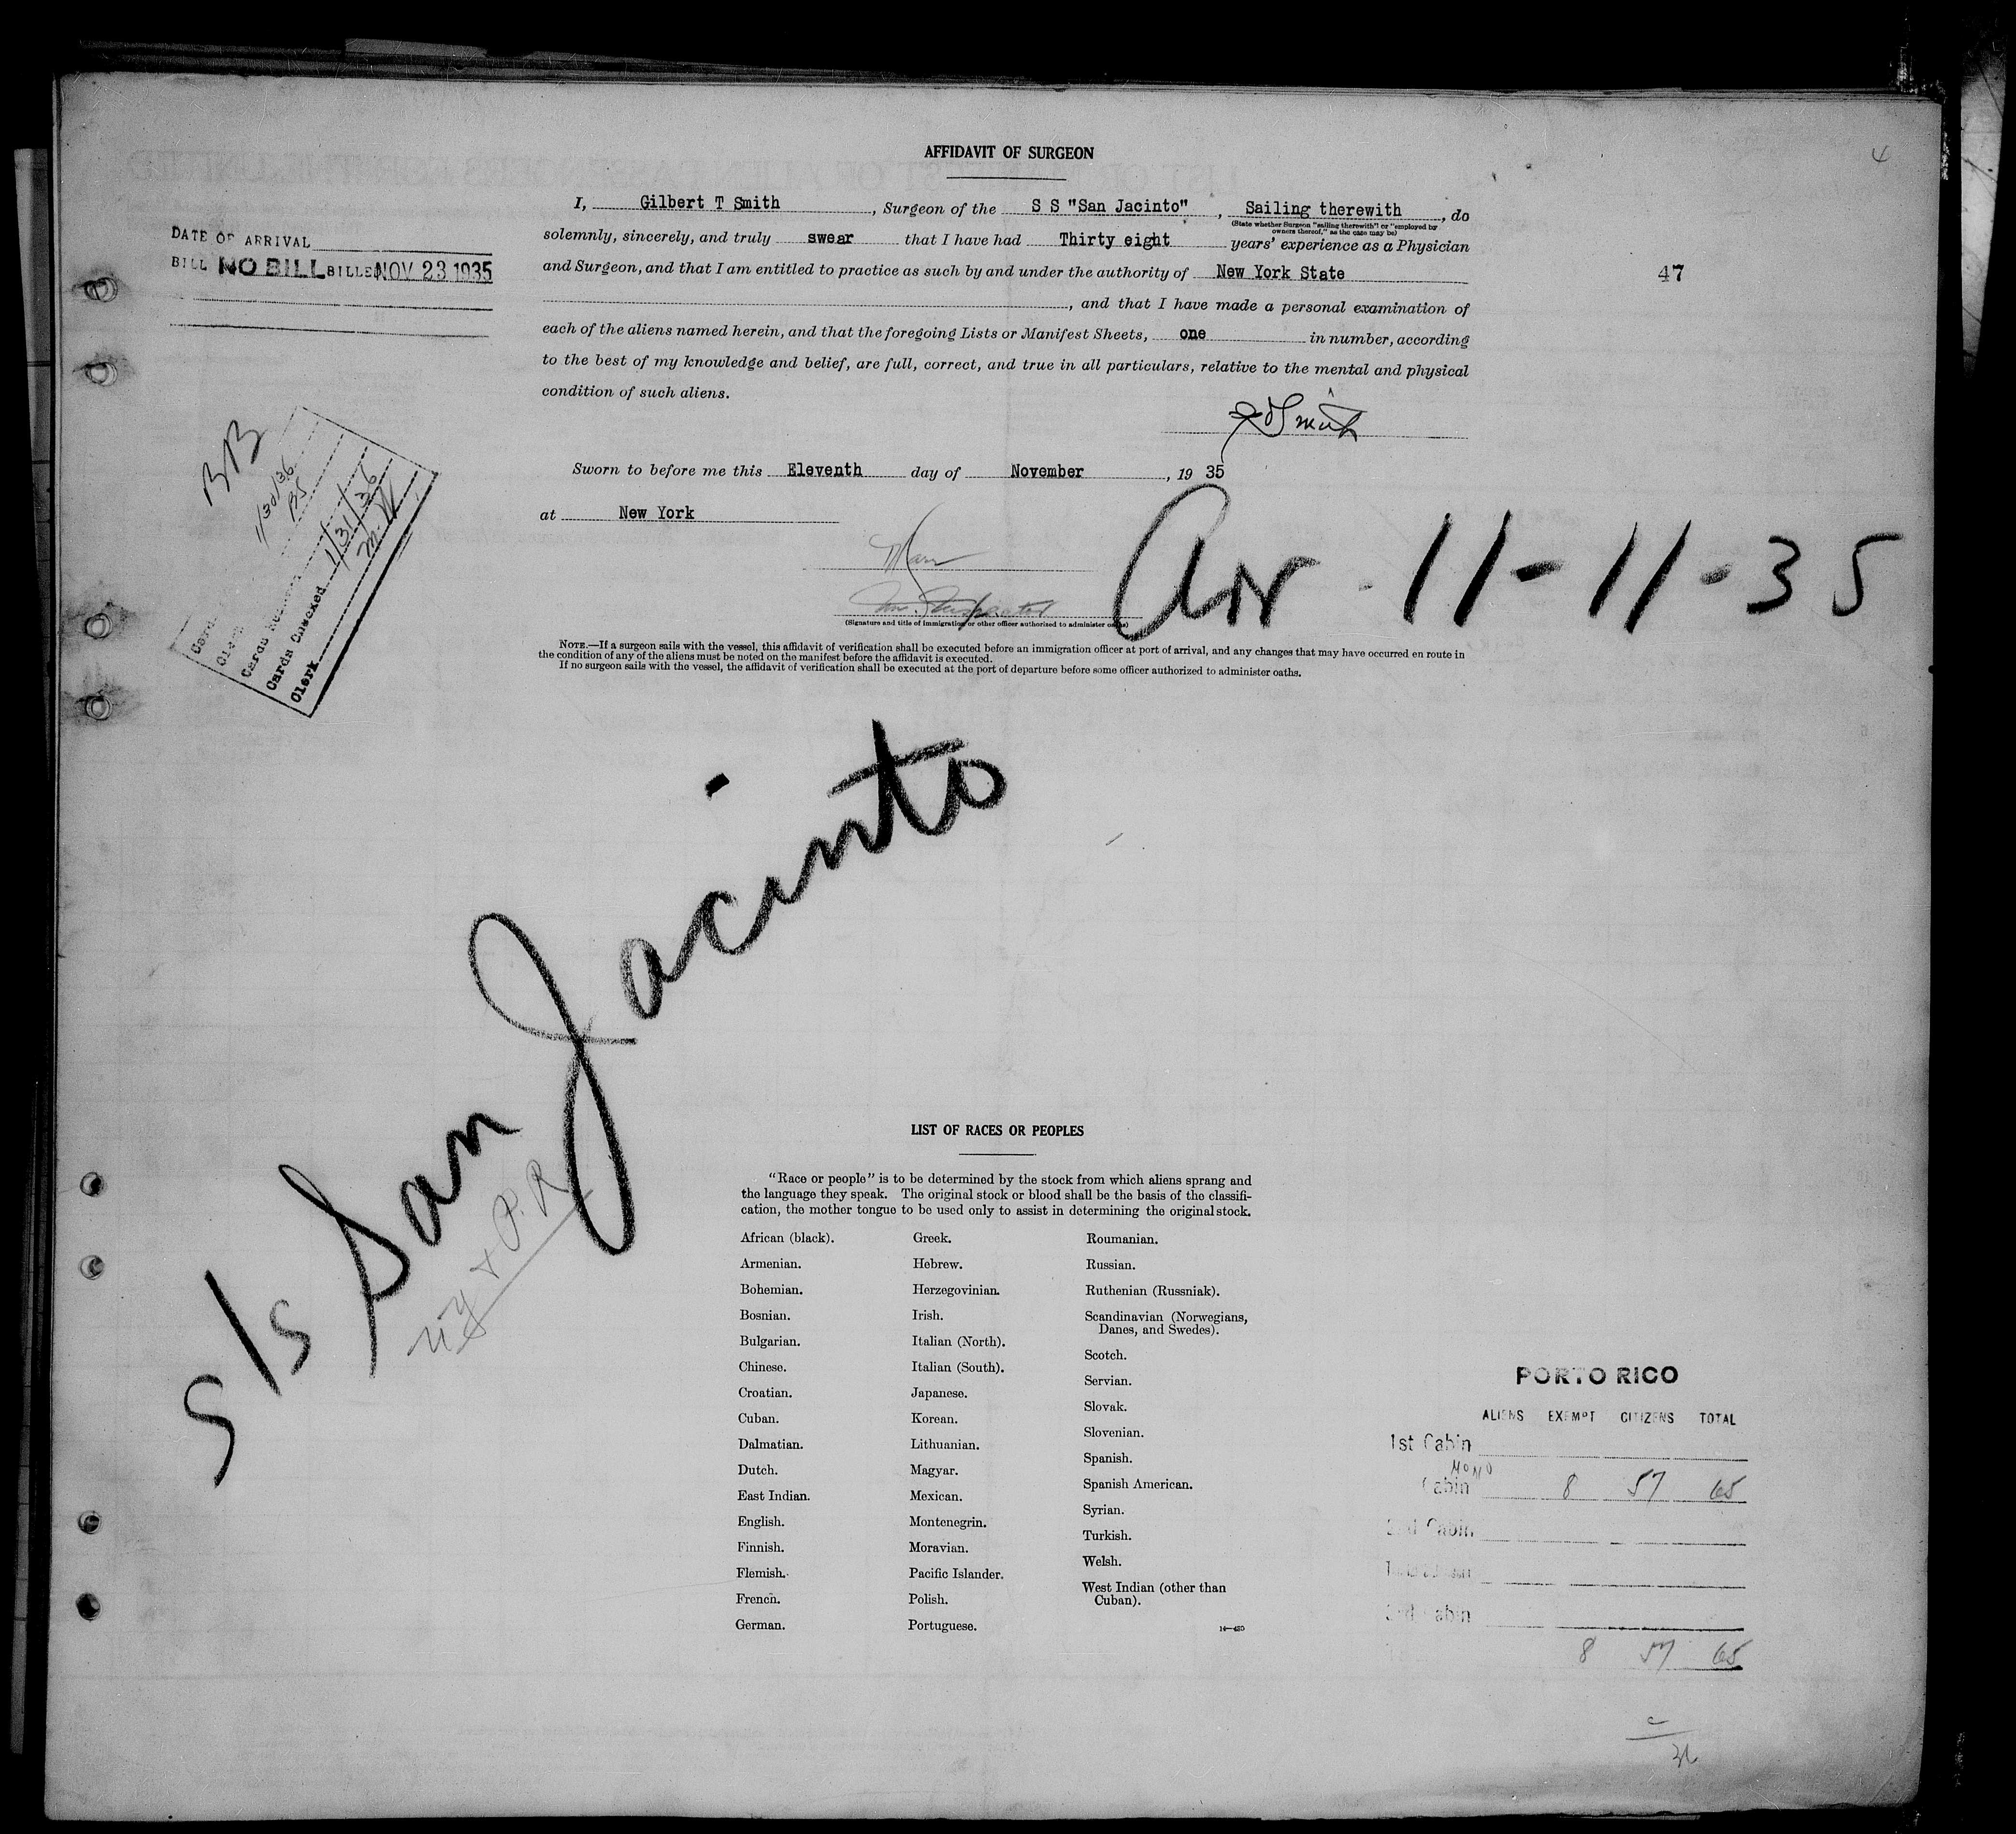 4
AFFIDAVIT OF SURGEON
I, Gilbert T Smith, Surgeon of the S S "San Jacinto", Sailing therewith, do
(State whether Surgeon "sailing therewith" or "employed by
owners thereof," as the case may be)
solemnly, sincerely, and truly swear that I have had Thirty eight years' experience as a Physician
and Surgeon, and that I am entitled to practice as such by and under the authority of New York State
, and that I have made a personal examination of
each of the aliens named herein, and that the foregoing Lists or Manifest Sheets, one in number, according
to the best of my knowledge and belief, are full, correct, and true in all particulars, relative to the mental and physical
condition of such aliens.
DATE OF ARRIVAL
BILL NO BILL BILLED NOV 23 1935
47
Smith
Sworn to before me this Eleventh day of November, 19 35
at New York
Arr - 11-11-35
Inspector
(Signature and title of immigration or other officer authorized to administer oaths)
BB
1/30/36
BS
Cards Checked 1/31/36
Clerk M.W.
NOTE.—If a surgeon sails with the vessel, this affidavit of verification shall be executed before an immigration officer at port of arrival, and any changes that may have occurred en route in
the condition of any of the aliens must be noted on the manifest before the affidavit is executed.
If no surgeon sails with the vessel, the affidavit of verification shall be executed at the port of departure before some officer authorized to administer oaths.
S/S San Jacinto
NY + P.R.
LIST OF RACES OR PEOPLES
"Race or people" is to be determined by the stock from which aliens sprang and
the language they speak. The original stock or blood shall be the basis of the classifi-
cation, the mother tongue to be used only to assist in determining the original stock.
African (black).
Armenian.
Bohemian.
Bosnian.
Bulgarian.
Chinese.
Croatian.
Cuban.
Dalmatian.
Dutch.
East Indian.
English.
Finnish.
Flemish.
French.
German.
Greek.
Hebrew.
Herzegovinian.
Irish.
Italian (North).
Italian (South).
Japanese.
Korean.
Lithuanian.
Magyar.
Mexican.
Montenegrin.
Moravian.
Pacific Islander.
Polish.
Portuguese.
Roumanian.
Russian.
Ruthenian (Russniak).
Scandinavian (Norwegians,
Danes, and Swedes).
Scotch.
Servian.
Slovak.
Slovenian.
Spanish.
Spanish American.
Syrian.
Turkish.
Welsh.
West Indian (other than
Cuban).
PORTO RICO
ALIENS EXEMPT CITIZENS TOTAL
1st Cabin
MONO
Cabin 8 57 65
2nd Cabin
3rd Cabin
8 57 65